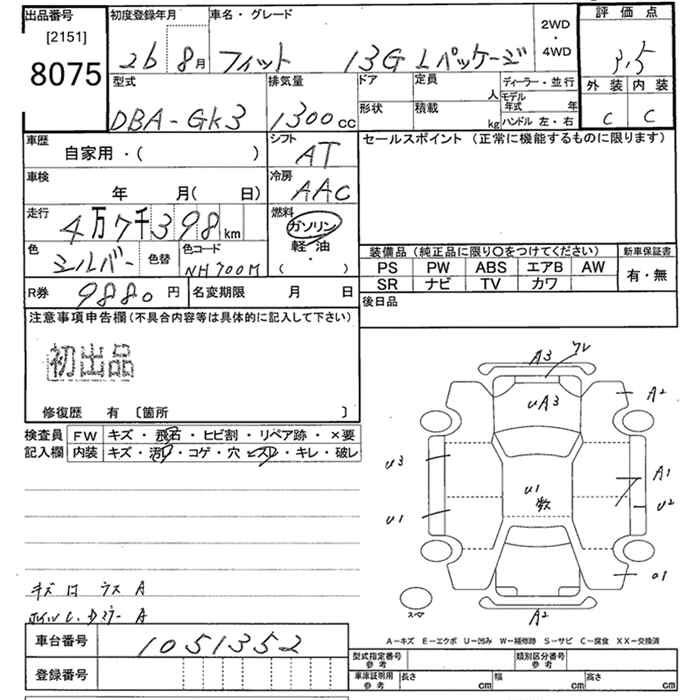 出品番号 初度登録年月 車名・グレード 2WD・4WD 評価点
[2151]
8075 26 8月 フィット 13G Lパッケージ 3.5
型式 排気量 ドア 定員 人 ディーラー・並行 外装 内装
DBA-GK3 1300cc 形状 積載 kg モデル年式 年 ハンドル 左・右 C C
車歴 自家用・( ) シフト AT セールスポイント (正常に機能するものに限ります)
車検 年 月( 日) 冷房 AAC
走行 4万7千398km 燃料 ガソリン・軽油・( )
色 シルバー 色替 色コード NH700M
装備品 (純正品に限り○をつけてください) 新車保証書
PS PW ABS エアB AW 有・無
SR ナビ TV カワ
R券 9880円 名変期限 月 日 後日品
注意事項申告欄(不具合内容等は具体的に記入して下さい)
初出品
修復歴 有 〔箇所 〕
検査員 FW キズ・飛石・ヒビ割・リペア跡・×要
記入欄 内装 キズ・汚れ・コゲ・穴・スレ・キレ・破レ
A3 ワレ
A2
UA3
U3
A1
U1 数
U2
U1
01
A2
スペア
A
A
A-キズ E-エクボ U-凹み W-補修跡 S-サビ C-腐食 XX-交換済
車台番号 1051352 型式指定番号 参考 類別区分番号 参考
登録番号 車庫証明用 参考 長さ cm 幅 cm 高さ cm